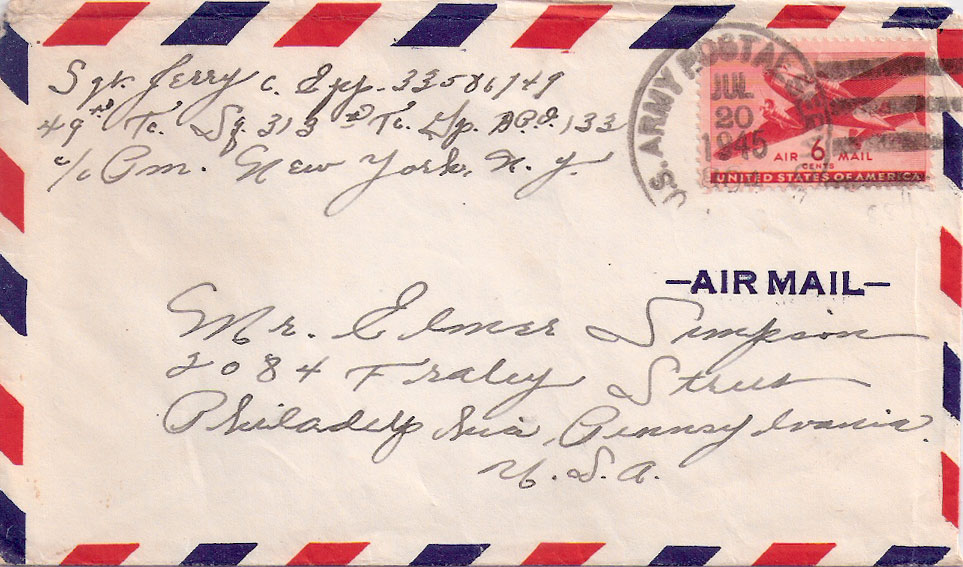 Sgt. Jerry C. Epp. 33586749
49th Tc. Sq. 313th Tc. Gp. A.P.O. 133
c/o Pm. New York, N.Y.
U.S. ARMY POSTAL
JUL
20
1945
AIR 6 MAIL
CENTS
UNITED STATES OF AMERICA
-AIR MAIL-
Mr. Elmer Simpson
2084 Fraley Street
Philadelphia, Pennsylvania.
U.S.A.